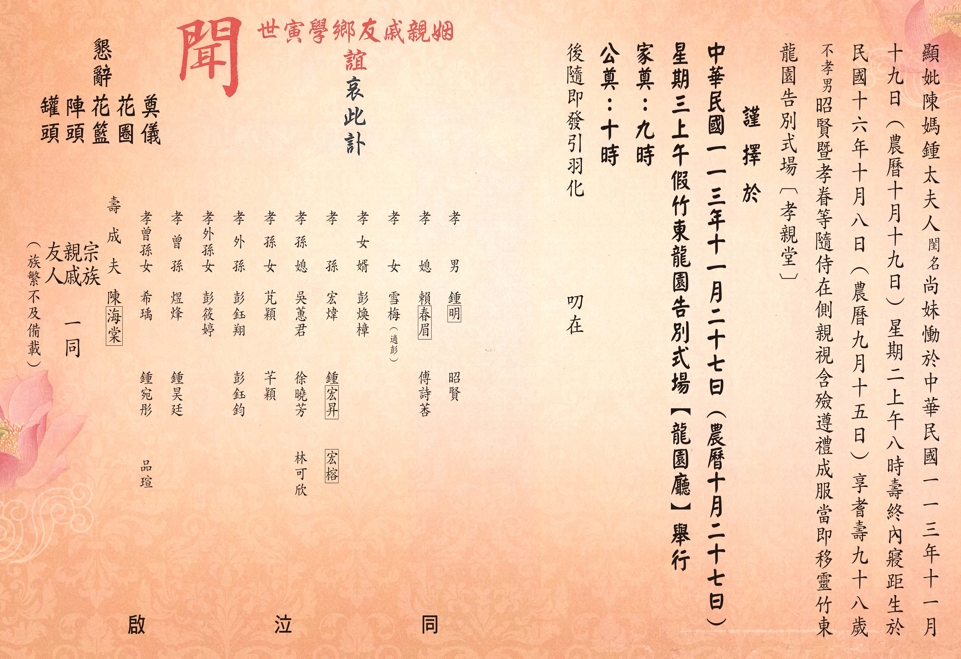 顯妣陳媽鍾太夫人閨名尚妹慟於中華民國一一三年十一月
十九日（農曆十月十九日）星期二上午八時壽終內寢距生於
民國十六年十月八日（農曆九月十五日）享耆壽九十八歲
不孝男昭賢暨孝眷等隨侍在側親視含殮遵禮成服當即移靈竹東
龍園告別式場〔孝親堂〕
謹擇於
中華民國一一三年十一月二十七日（農曆十月二十七日）
星期三上午假竹東龍園告別式場【龍園廳】舉行
家奠：九時
公奠：十時
後隨即發引羽化 叨在
姻親戚友鄉學寅世
誼哀此訃
聞
孝男 鍾明 昭賢
孝媳 賴春眉 傅詩莕
孝女 雪梅（適彭）
孝女婿 彭煥樟
孝孫 宏煒 鍾宏昇 宏榕
孝孫媳 吳蕙君 徐曉芳 林可欣
孝孫女 芃穎 芊穎
孝外孫 彭鈺翔 彭鈺鈞
孝外孫女 彭筱婷
孝曾孫 煜烽 鍾昊廷
孝曾孫女 希瑀 鍾宛彤 品瑄
壽成夫 陳海棠
宗族
親戚 一同
友人
（族繁不及備載）
同泣啟
懇辭
奠儀
花圈
花籃
陣頭
罐頭